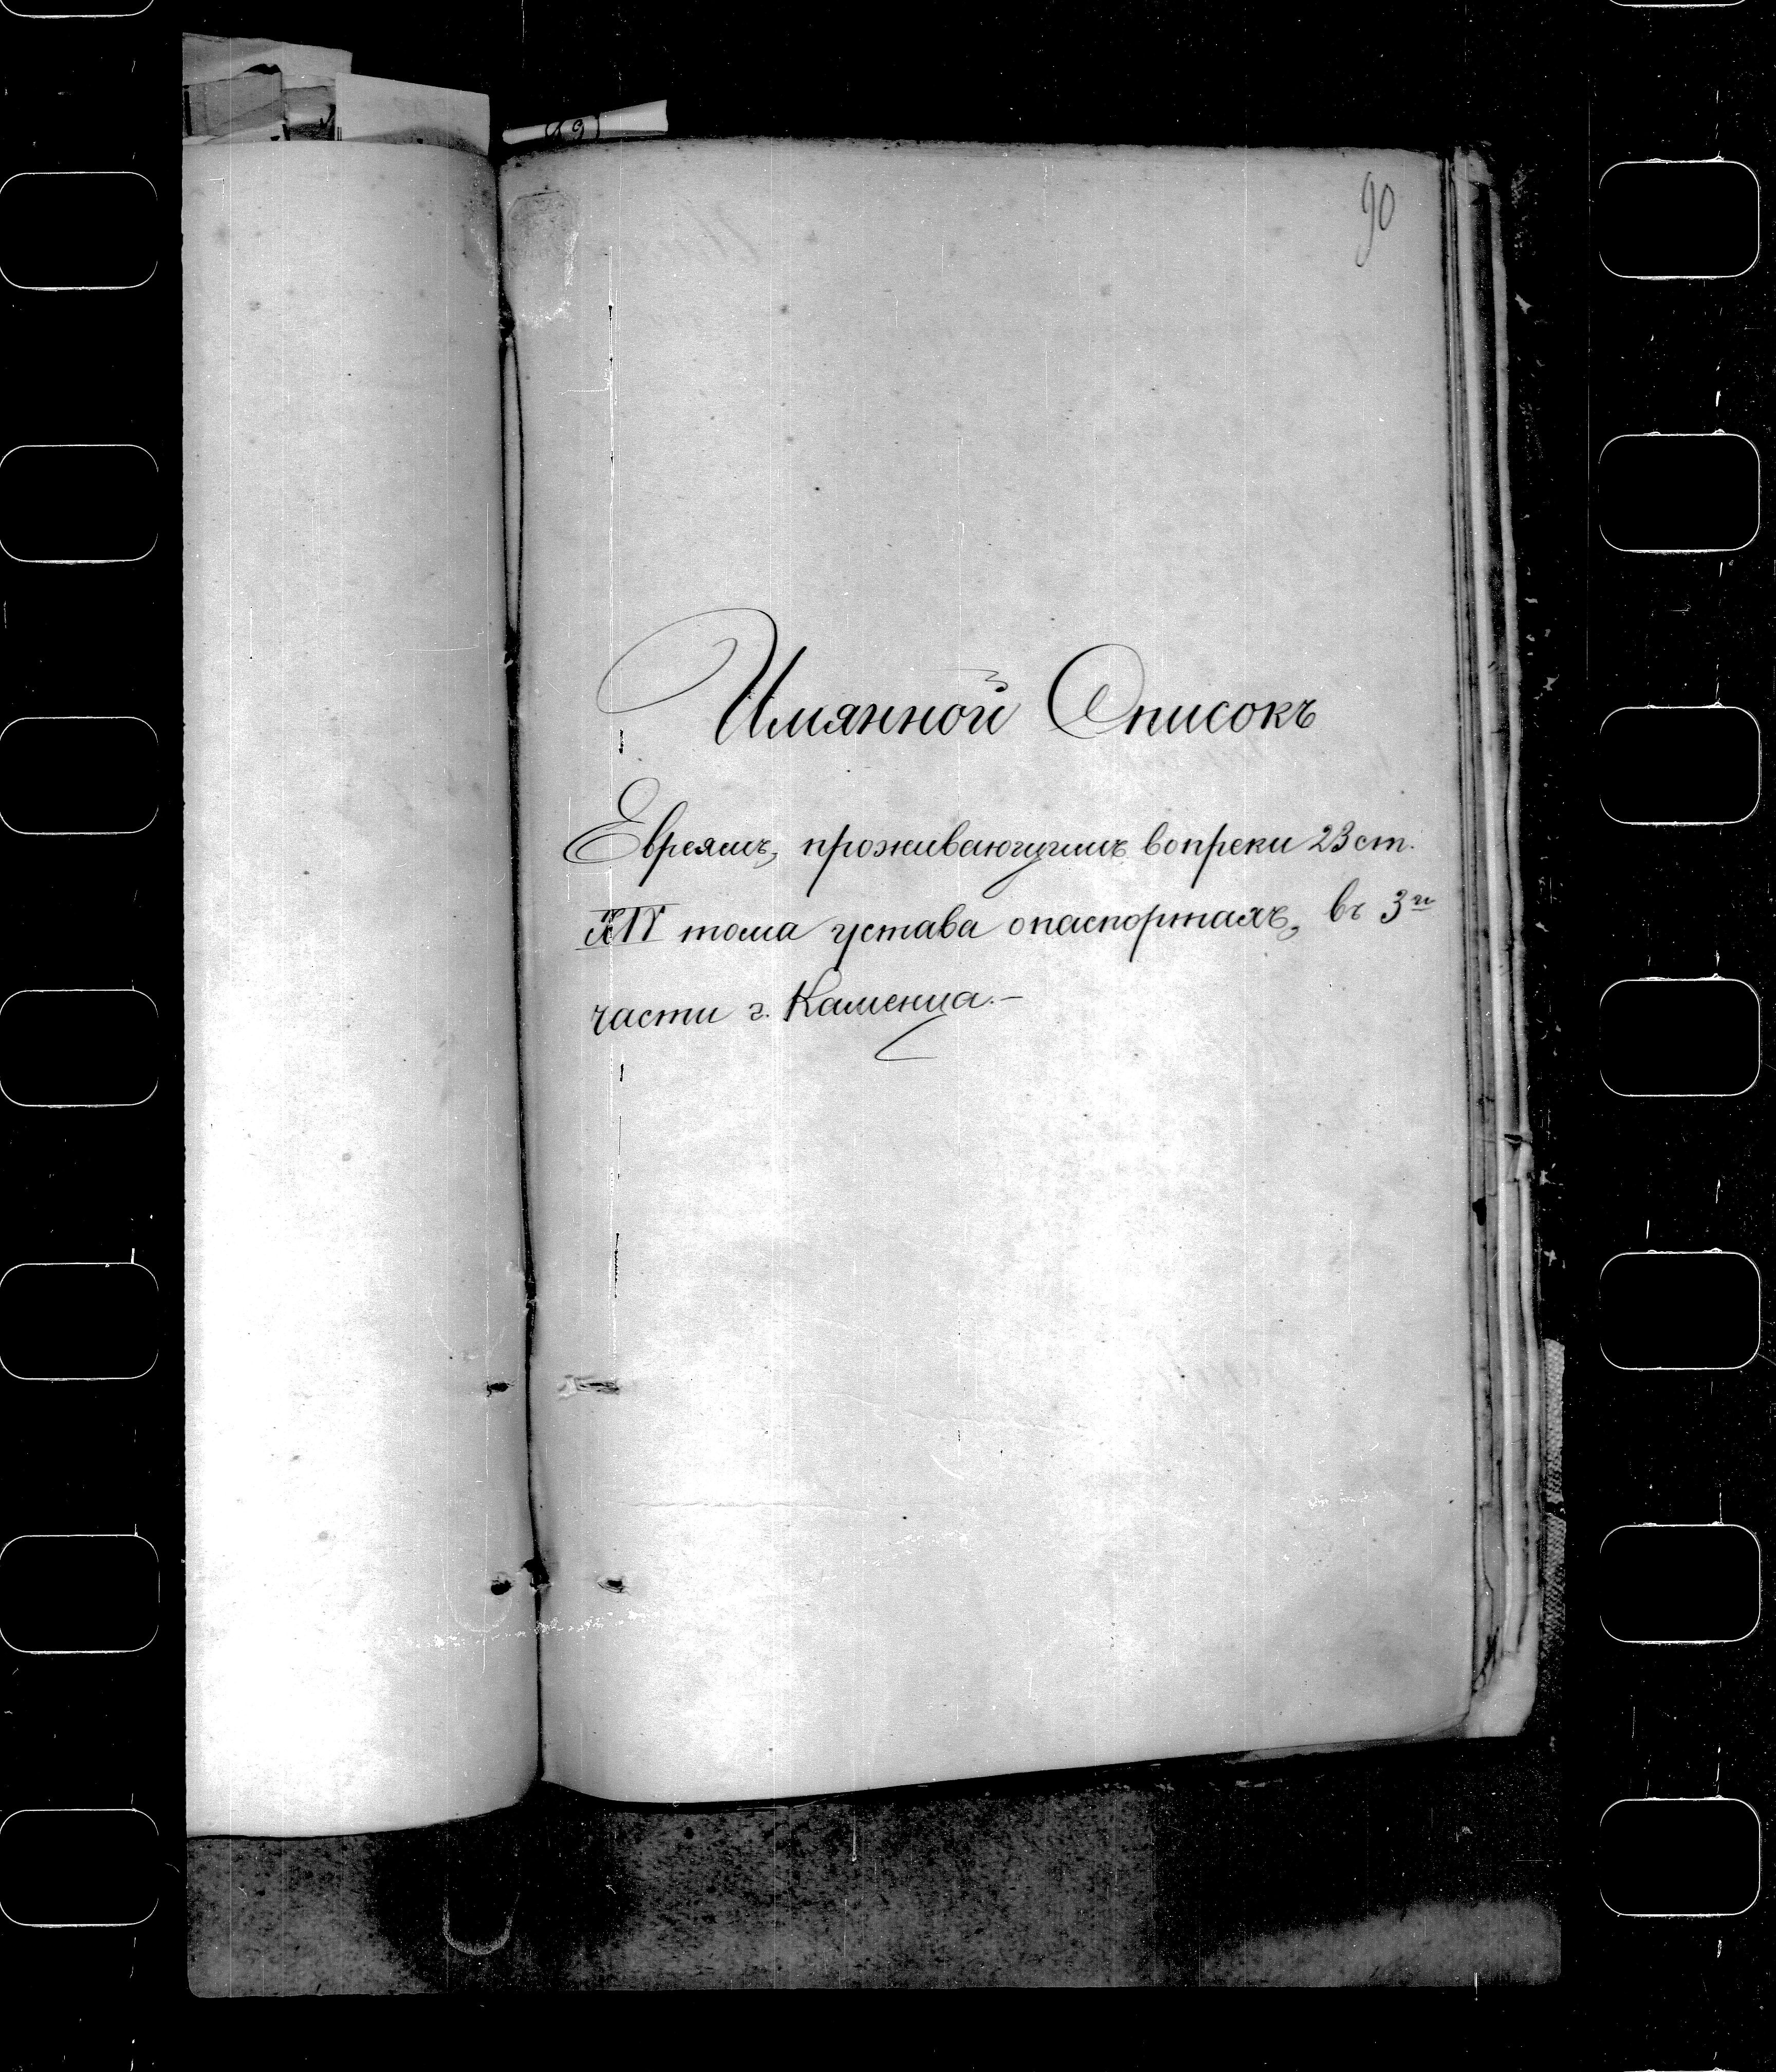 90
Имянной Списокъ
Евреямъ, проживающимъ вопреки 23 ст.
XIV тома устава о паспортахъ, въ 3й
части г. Каменца.—